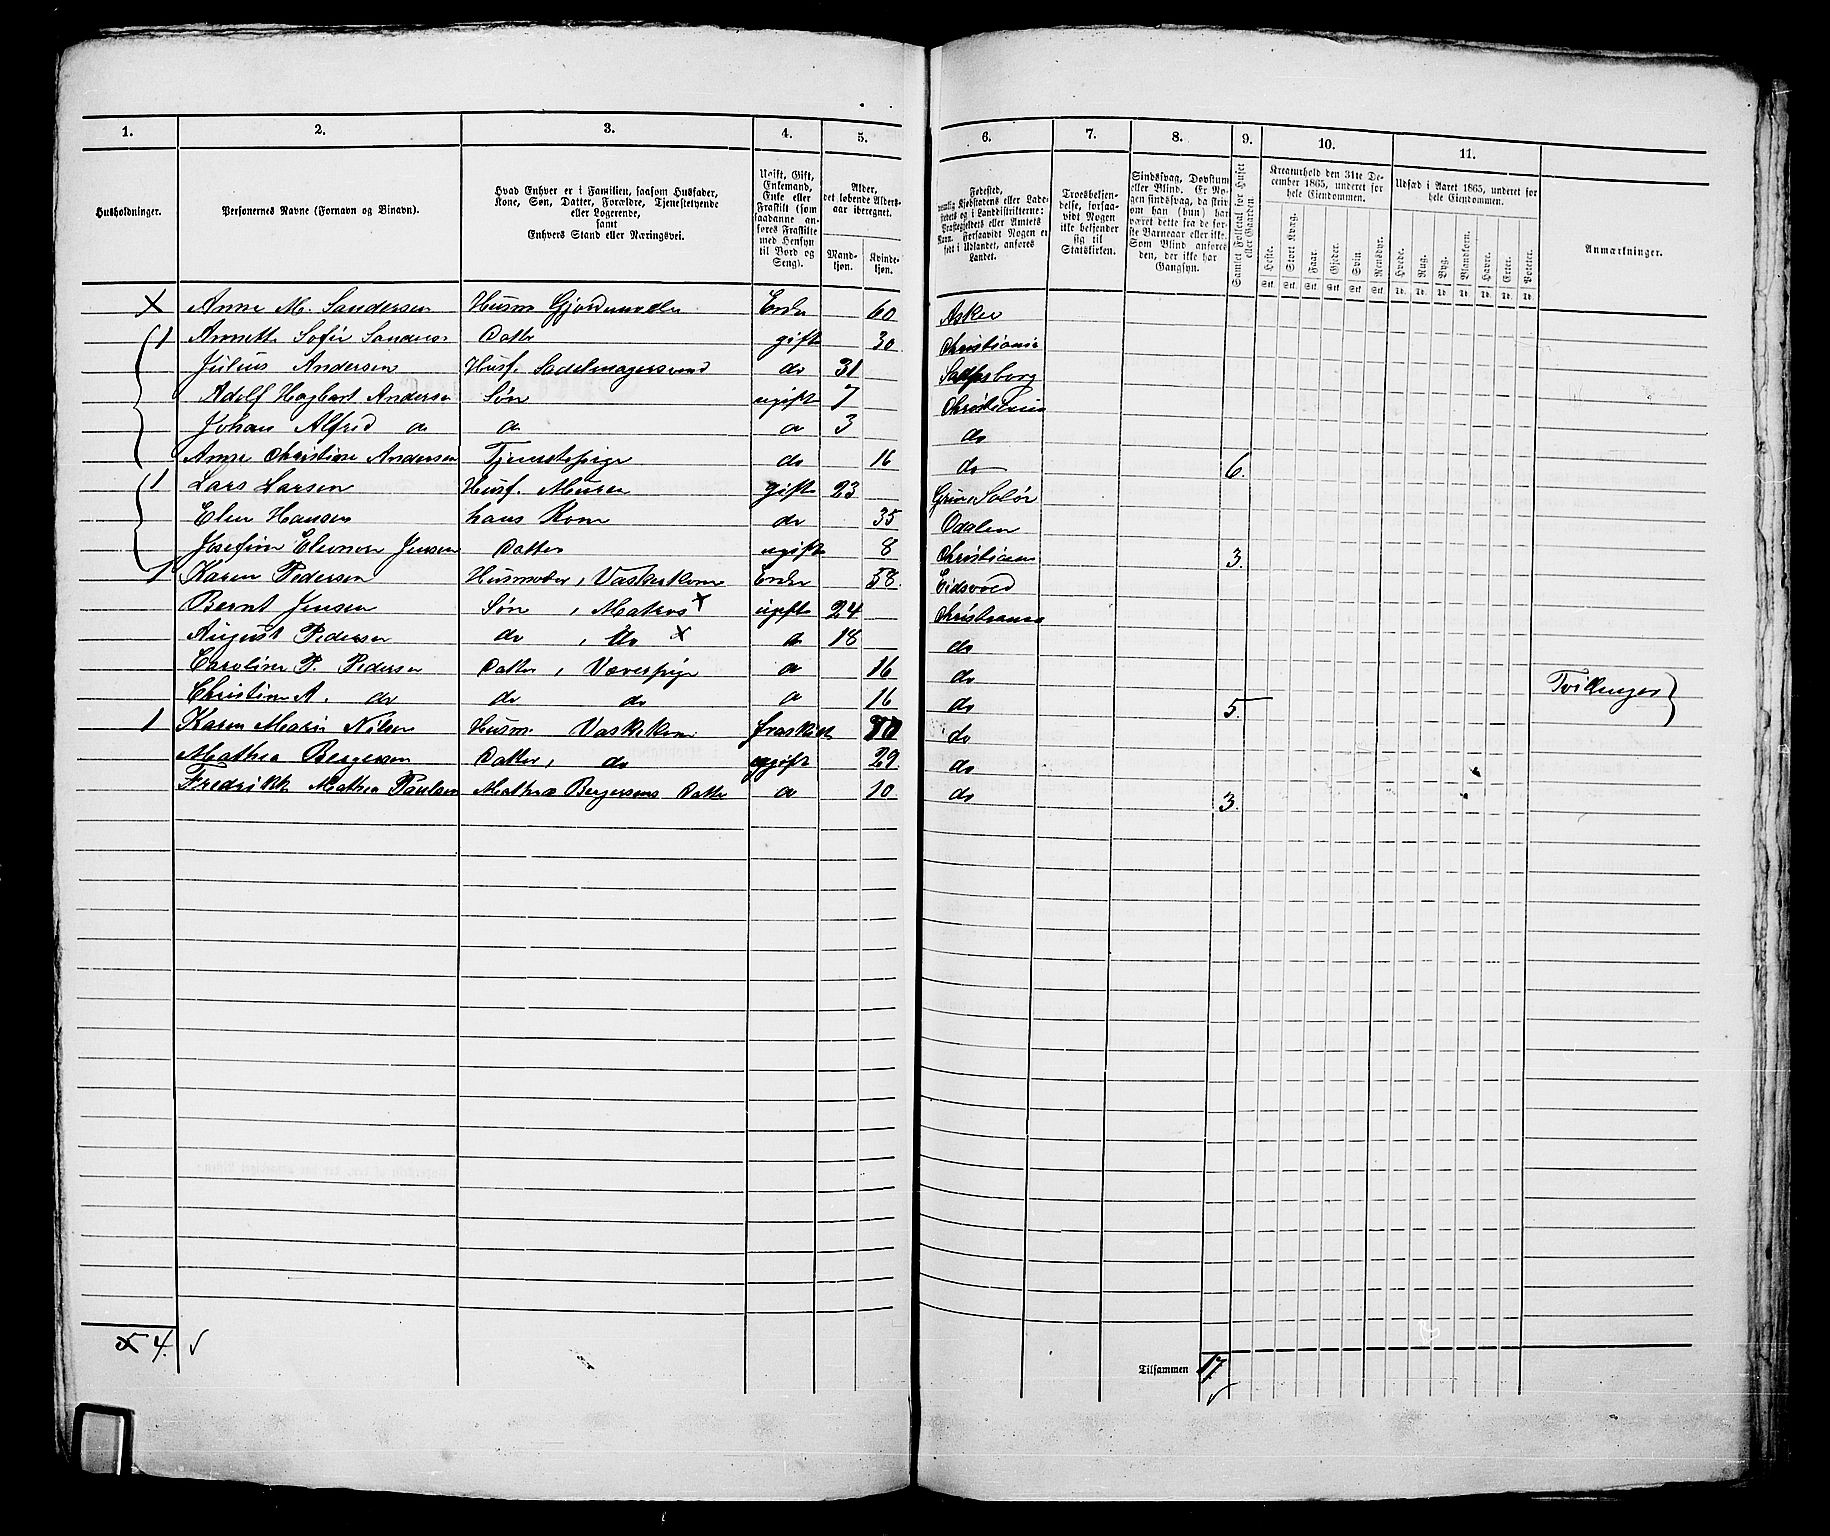 1. 2. 3. 4. 5. 6. 7. 8. 9. 10. 11.
Husholdninger.
Personernes Navne (Fornavn og Binavn).
Hvad Enhver er i Familien, saasom Husfader,
Kone, Søn, Datter, Forældre, Tjenestetyende
eller Logerende,
samt
Enhvers Stand eller Næringsvei.
Ugift, Gift,
Enkemand,
Enke eller
Fraskilt (som
saadanne an-
føres Fraskilte
med Hensyn
til Bord og
Seng).
Alder,
det løbende Alders-
aar iberegnet.
Mand-
kjøn.
Kvinde-
kjøn.
Fødested,
nemlig Kjøbstadens eller Lade-
stedets og i Landdistrikterne:
Præstegjeldets eller Amtets
Navn. Forsaavidt Nogen er
født i Udlandet, anføres
Landet.
Troesbekjen-
delse, forsaa-
vidt Nogen
ikke bekjender
sig til
Statskirken.
Sindssvag, Døvstum
eller Blind. Er No-
gen sindssvag, da skriv
om han (hun) har
været dette fra de før-
ste Barneaar eller ikke.
Som Blind anføres
den, der ikke har
Gangsyn.
Samlet Folketal for Huset
eller Gaarden.
Kreaturhold den 31te De-
cember 1865, underet for
hele Eiendommen.
Heste. Stort Kvæg. Faar. Gjeder. Svin. Rensdyr.
Stk. Stk. Stk. Stk. Stk. Stk.
Udsæd i Aaret 1865, underet for
hele Eiendommen.
Hvede. Rug. Byg. Blandkorn. Havre. Erter. Poteter.
Td. Td. Td. Td. Td. Td. Td.
Anmærkninger.
x Anne M. Sandersen Husm Gjordemoder Enke 60 Asker
1 Annette Sofie Sanders datter gift 30 Christiania
Julius Andersen Husf. Sadelmagersvend do 31 Sarpsborg
Adolf Hagbart Andersen Søn ugift 7 Christiania
Johan Alfred do do do 3 do
Anne Christine Andersen Tjenestepige do 16 do 6.
1 Lars Larsen Husf. Murer gift 23 Grue Solør
Elen Hansen hans Kone do 35 Odalen
Josefine Eleonore Jensen Datter ugift 8 Christiania 3.
1 Karen Pedersen Husmoder, Vaskerkone Enke 58 Eidsvold
Bernt Jensen Søn, Matros x ugift 24 Christiania
August Pedersen do, do x do 18 do
Caroline P. Pedersen Datter, Væverpige do 16 do
Christine A. do do do do 16 do 5. Tvillinger
1 Karen Marie Nilsen Husm Vaskekone fraskilt 70 do
Mathea Bergersen Datter, do ugift 29 do
Fredrikke Mathea Paulsen Mathea Bergersens Datter do 10 do 3.
x 4.
Tilsammen 17